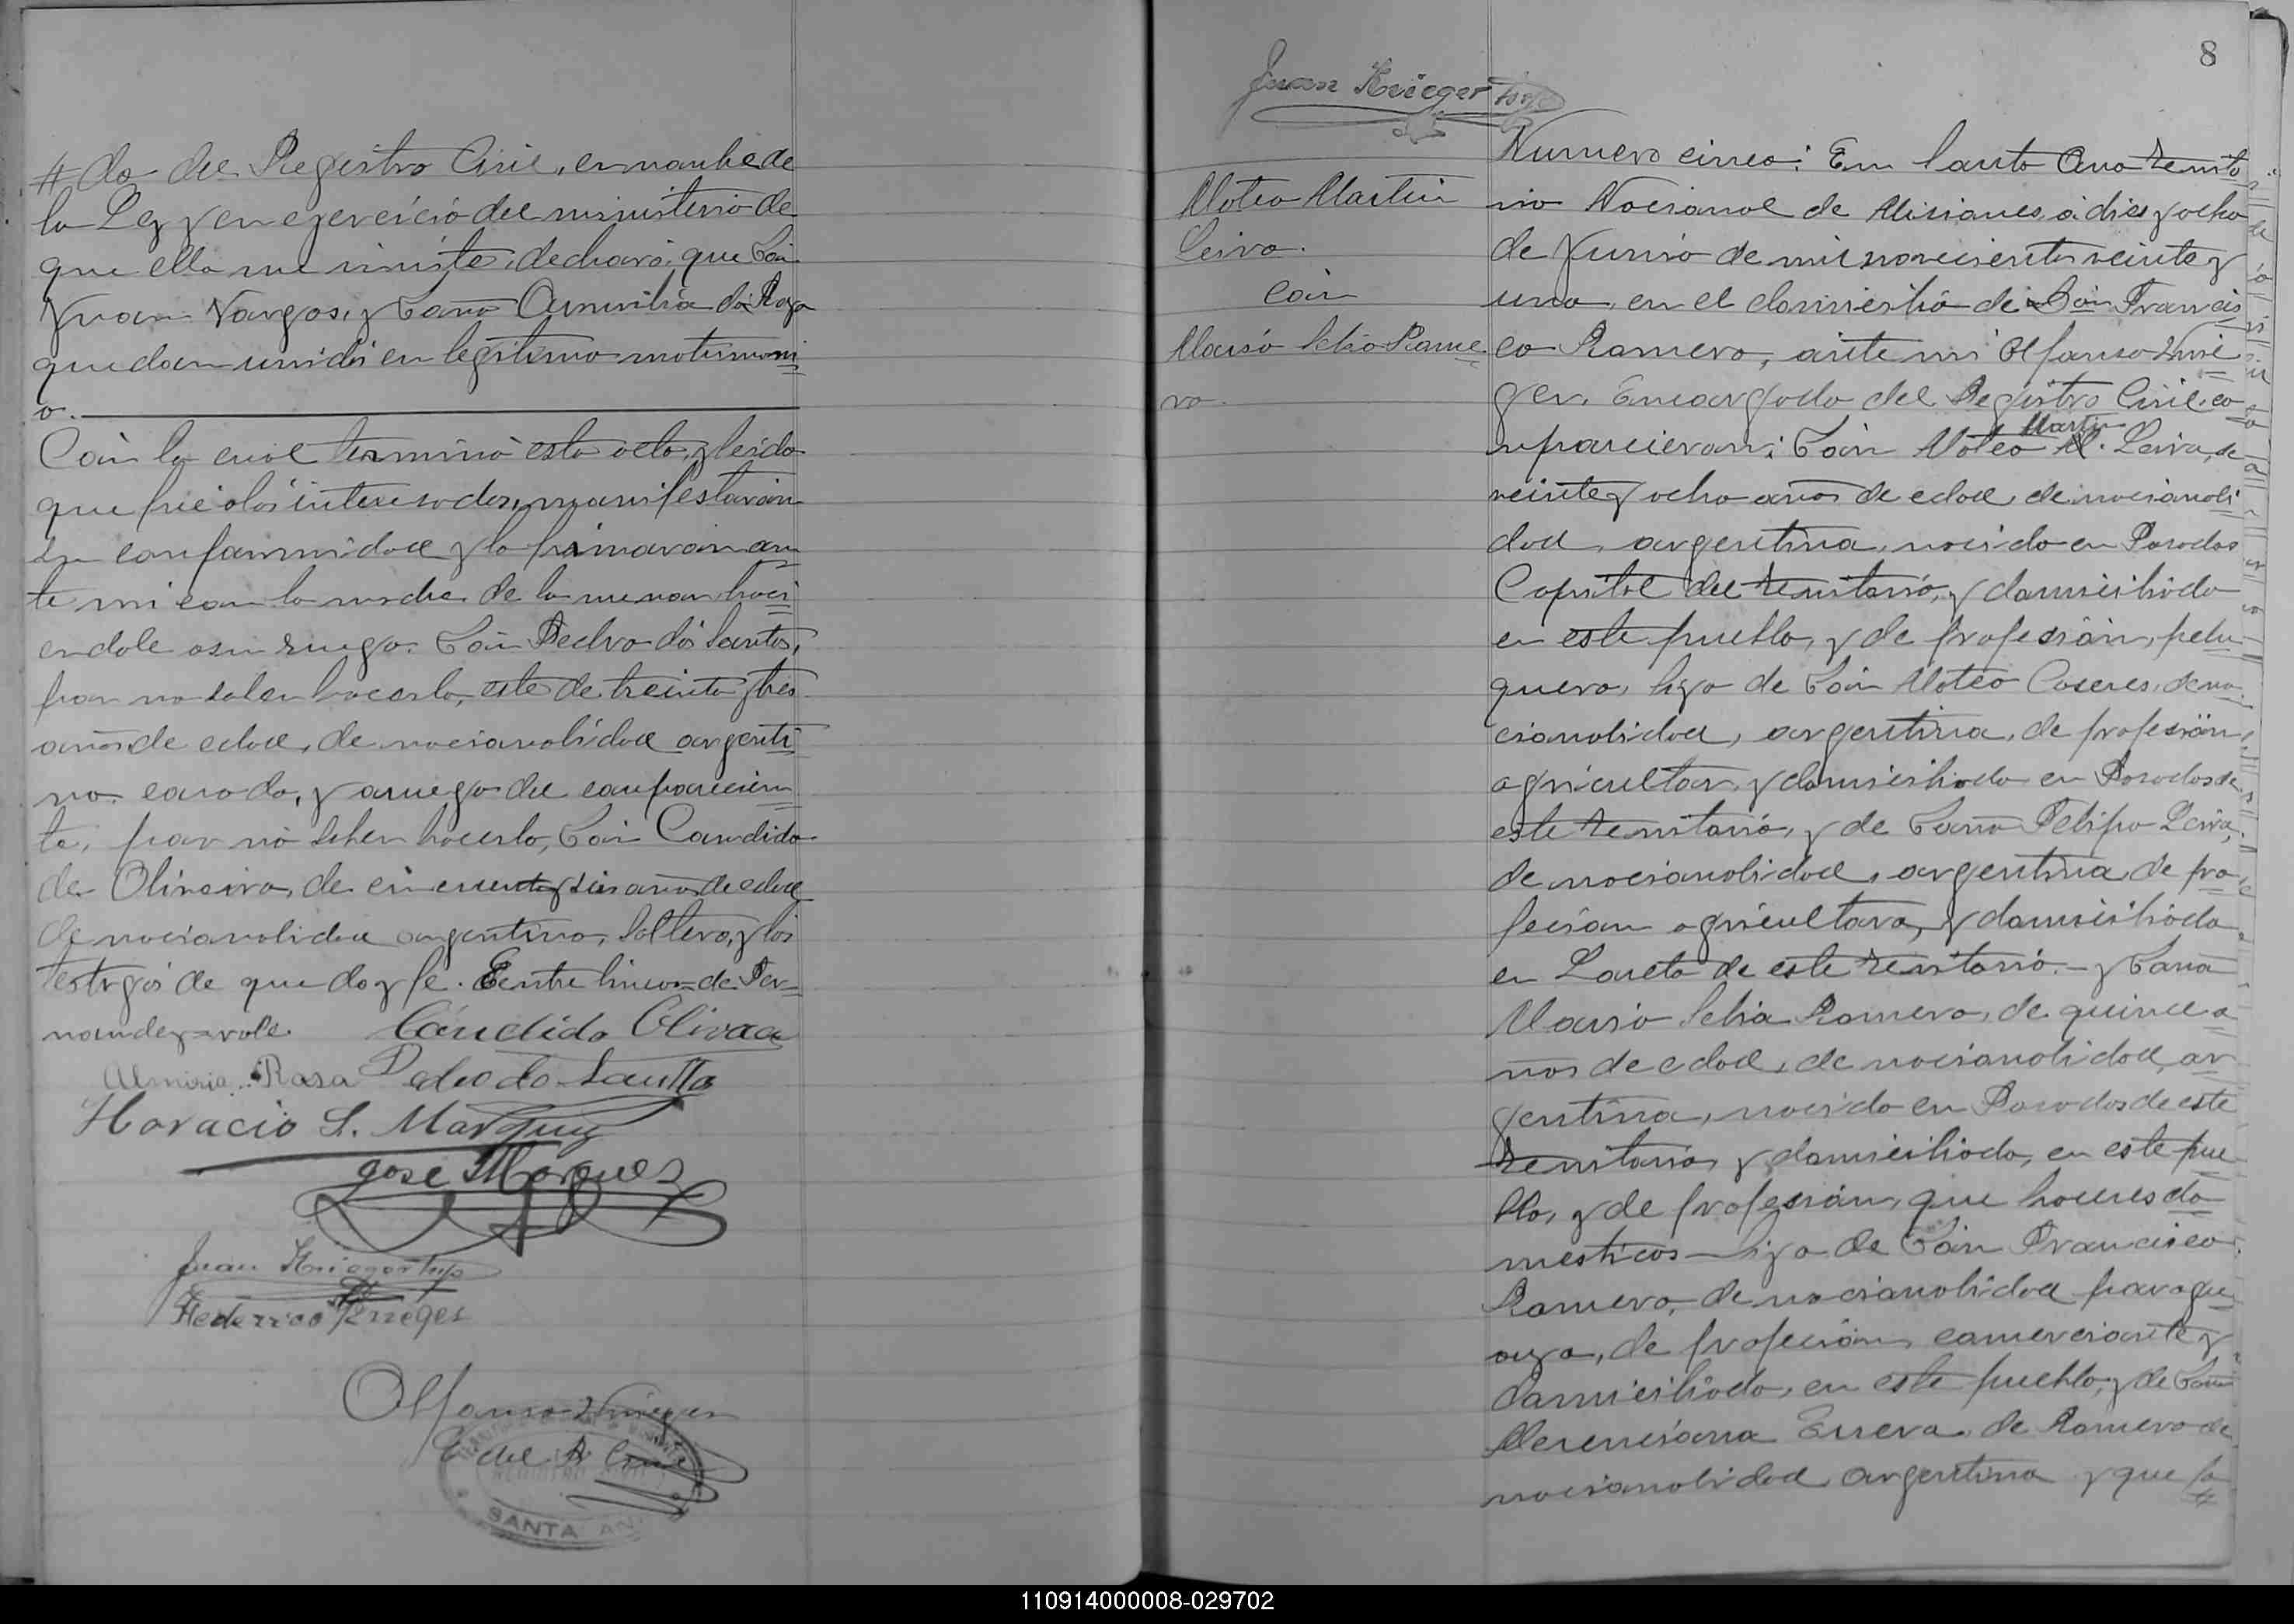 # do del Registro Civil, en nombre de
la Ley y en ejercicio del ministerio de
que ella me inviste, declaró, que Don
Juan Vargos, y Doña
quedan unidos en legitimo matrimoni
o.
Con lo cual termino esta acta, y leida
que fué a los interesados, manifestaron
su conformidad y la firmaron an
te mi con la madre de la menor haci
endole a su ruego Don Pedro dos Santos,
por no saber hacerlo, este de treinta y tres
años de edad, de nacionalidad argenti
no casado, y a ruego del comparecien
te, por no saber hacerlo, Don Candido
de Oliveira, de cincuenta y seis años de edad
de nacionalidad argentino, soltero, y los
testigos de que doy fe. Eentre lineas=de Fer=
nandez=vale. Cándido Olivaca
Almiria Rosa Pedro do Santto
Horacio S. Marquez
Jose Marques
Juan Krieger hijo
Federrico Krieger
Alfonso Krieger
E del R Civil
SANTA AN
8
Juan Krieger hijo
Mateo Martin
Leiva.
Con
Maria Selia Rome
ro
Numero cinco: En Santa Ana territo
rio Nacional de Misiones, a dies y ocho
de Junio de mil novecientos veinte y
uno, en el domicilio de Don Francis
co Romero, ante mi Alfonso Krie
ger, Encargado del Registro Civil co
Martin
mparecieron; Don Mateo M. Leiva, de
veinte y ocho años de edad, de nacionali
dad, argentina, nacido en Posadas
Capital del territorio, y domiciliado
en este pueblo, y de profesión, pelu
quero, hijo de Don Mateo Caseres, de na
cionalidad, argentina, de profesión,
agricultor, y domiciliado en Posadas de
este territorio, y de Doña Felipa Leiva,
de nacionalidad, argentina, de pro
fecion agricultora, y domiciliada
en Loreto de este territorio.- y Doña
Maria Selia Romero, de quince a
ños de edad, de nacionalidad, ar
gentina, nacida en Posadas de este
territorio, y domiciliada, en este pue
blo, y de profesión, que haceres do
mesticos - hija de Don Francisco
Romero, de nacionalidad paragu
aya, de profecion, comerciante y
domiciliado, en este pueblo, y de Doña
Merenciana Errera de Romero de
nacionalidad argentina y que fo
#
110914000008-029702